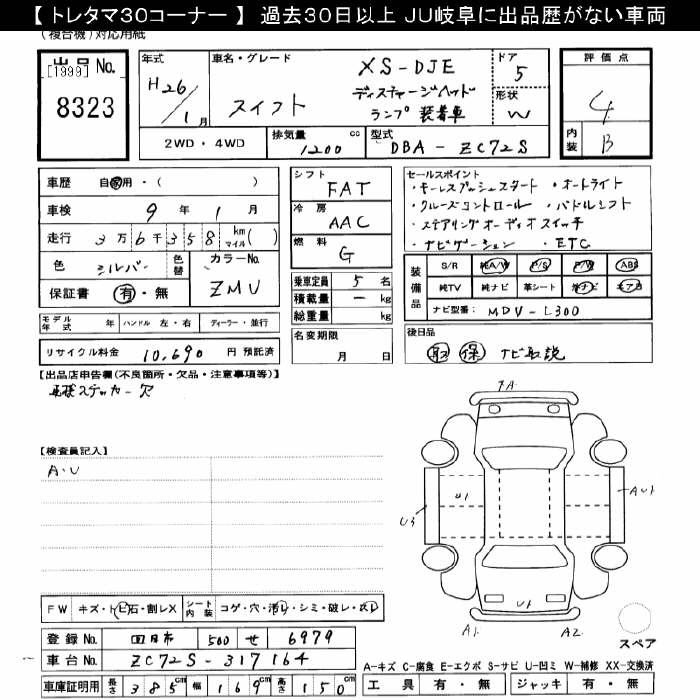 【 トレタマ30コーナー 】 過去30日以上 JU岐阜に出品歴がない車両
(複合機)対応用紙
出品No.
[1999]
8323
年式
H26/1月
車名・グレード
XS-DJE
スイフト
ディスチャージヘッド
ランプ装着車
ドア
5
形状
W
評価点
4
内装
B
2WD・4WD
排気量
1200 cc
型式
DBA-ZC72S
車歴 自家用・( )
車検 9年 1月
走行 3万6千358 km マイル( )
色 シルバー 色替
カラーNo.
ZMU
保証書 有・無
モデル年式 年 ハンドル 左・右 ディーラー・並行
リサイクル料金 10,690 円 預託済
シフト
FAT
冷房
AAC
燃料
G
乗車定員 5 名
積載量 ー kg
総重量 kg
名変期限
月 日
セールスポイント
・キーレスプッシュスタート ・オートライト
・クルーズコントロール ・パドルシフト
・ステアリングオーディオスイッチ
・ナビゲーション ・ETC
装備品
S/R 純A/W P/S P/W ABS
純TV 純ナビ 革シート
ナビ型番: MDV-L300
後日品
取 保 ナビ取説
【出品店申告欄(不良箇所・欠品・注意事項等)】
ステッカー欠
【検査員記入】
A・U
FA
U1
U3
AU1
U1
A1
A2
スペア
FW キズ・トビ石・割レX シート内装 コゲ・穴・汚レ・シミ・破レ・スレ
登録No. 四日市 500 せ 6979
車台No. ZC72S-317164
車庫証明用 長さ 385cm 幅 169cm 高さ 150cm
A-キズ C-腐食 E-エクボ S-サビ U-凹ミ W-補修 XX-交換済
工具 有・無 ジャッキ 有・無